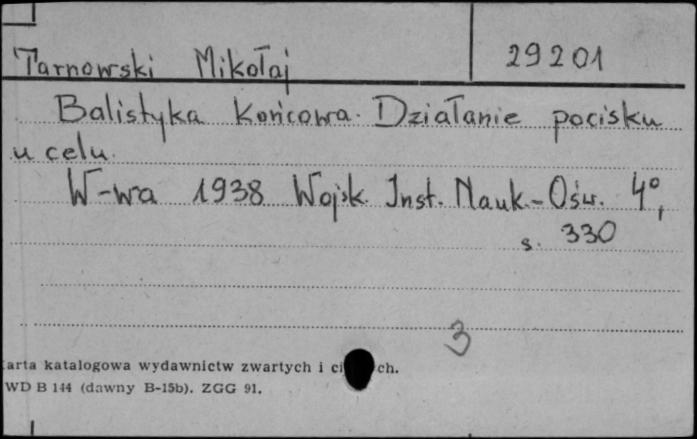 Tarnowski Mikołaj 29201
Balistyka Końcowa. Działanie pocisku
u celu.
W-wa 1938 Wojsk. Inst. Nauk.-Ośw. 4°,
s. 330
3
arta katalogowa wydawnictw zwartych i ci ch.
WD B 144 (dawny B-15b). ZGG 91.